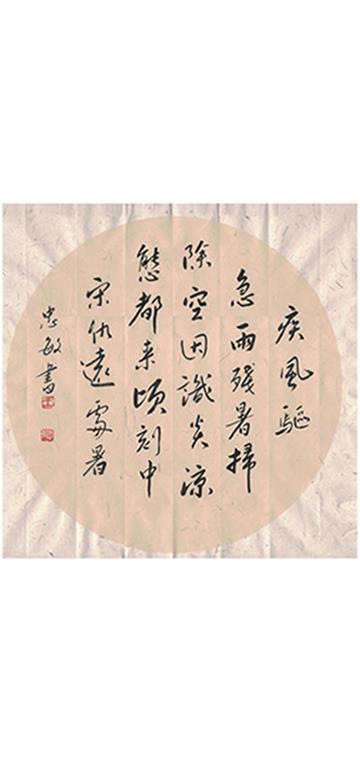 疾風驅
急雨殘暑掃
除空因識炎涼
態都來頃刻中
宋仇遠處暑
忠敏書